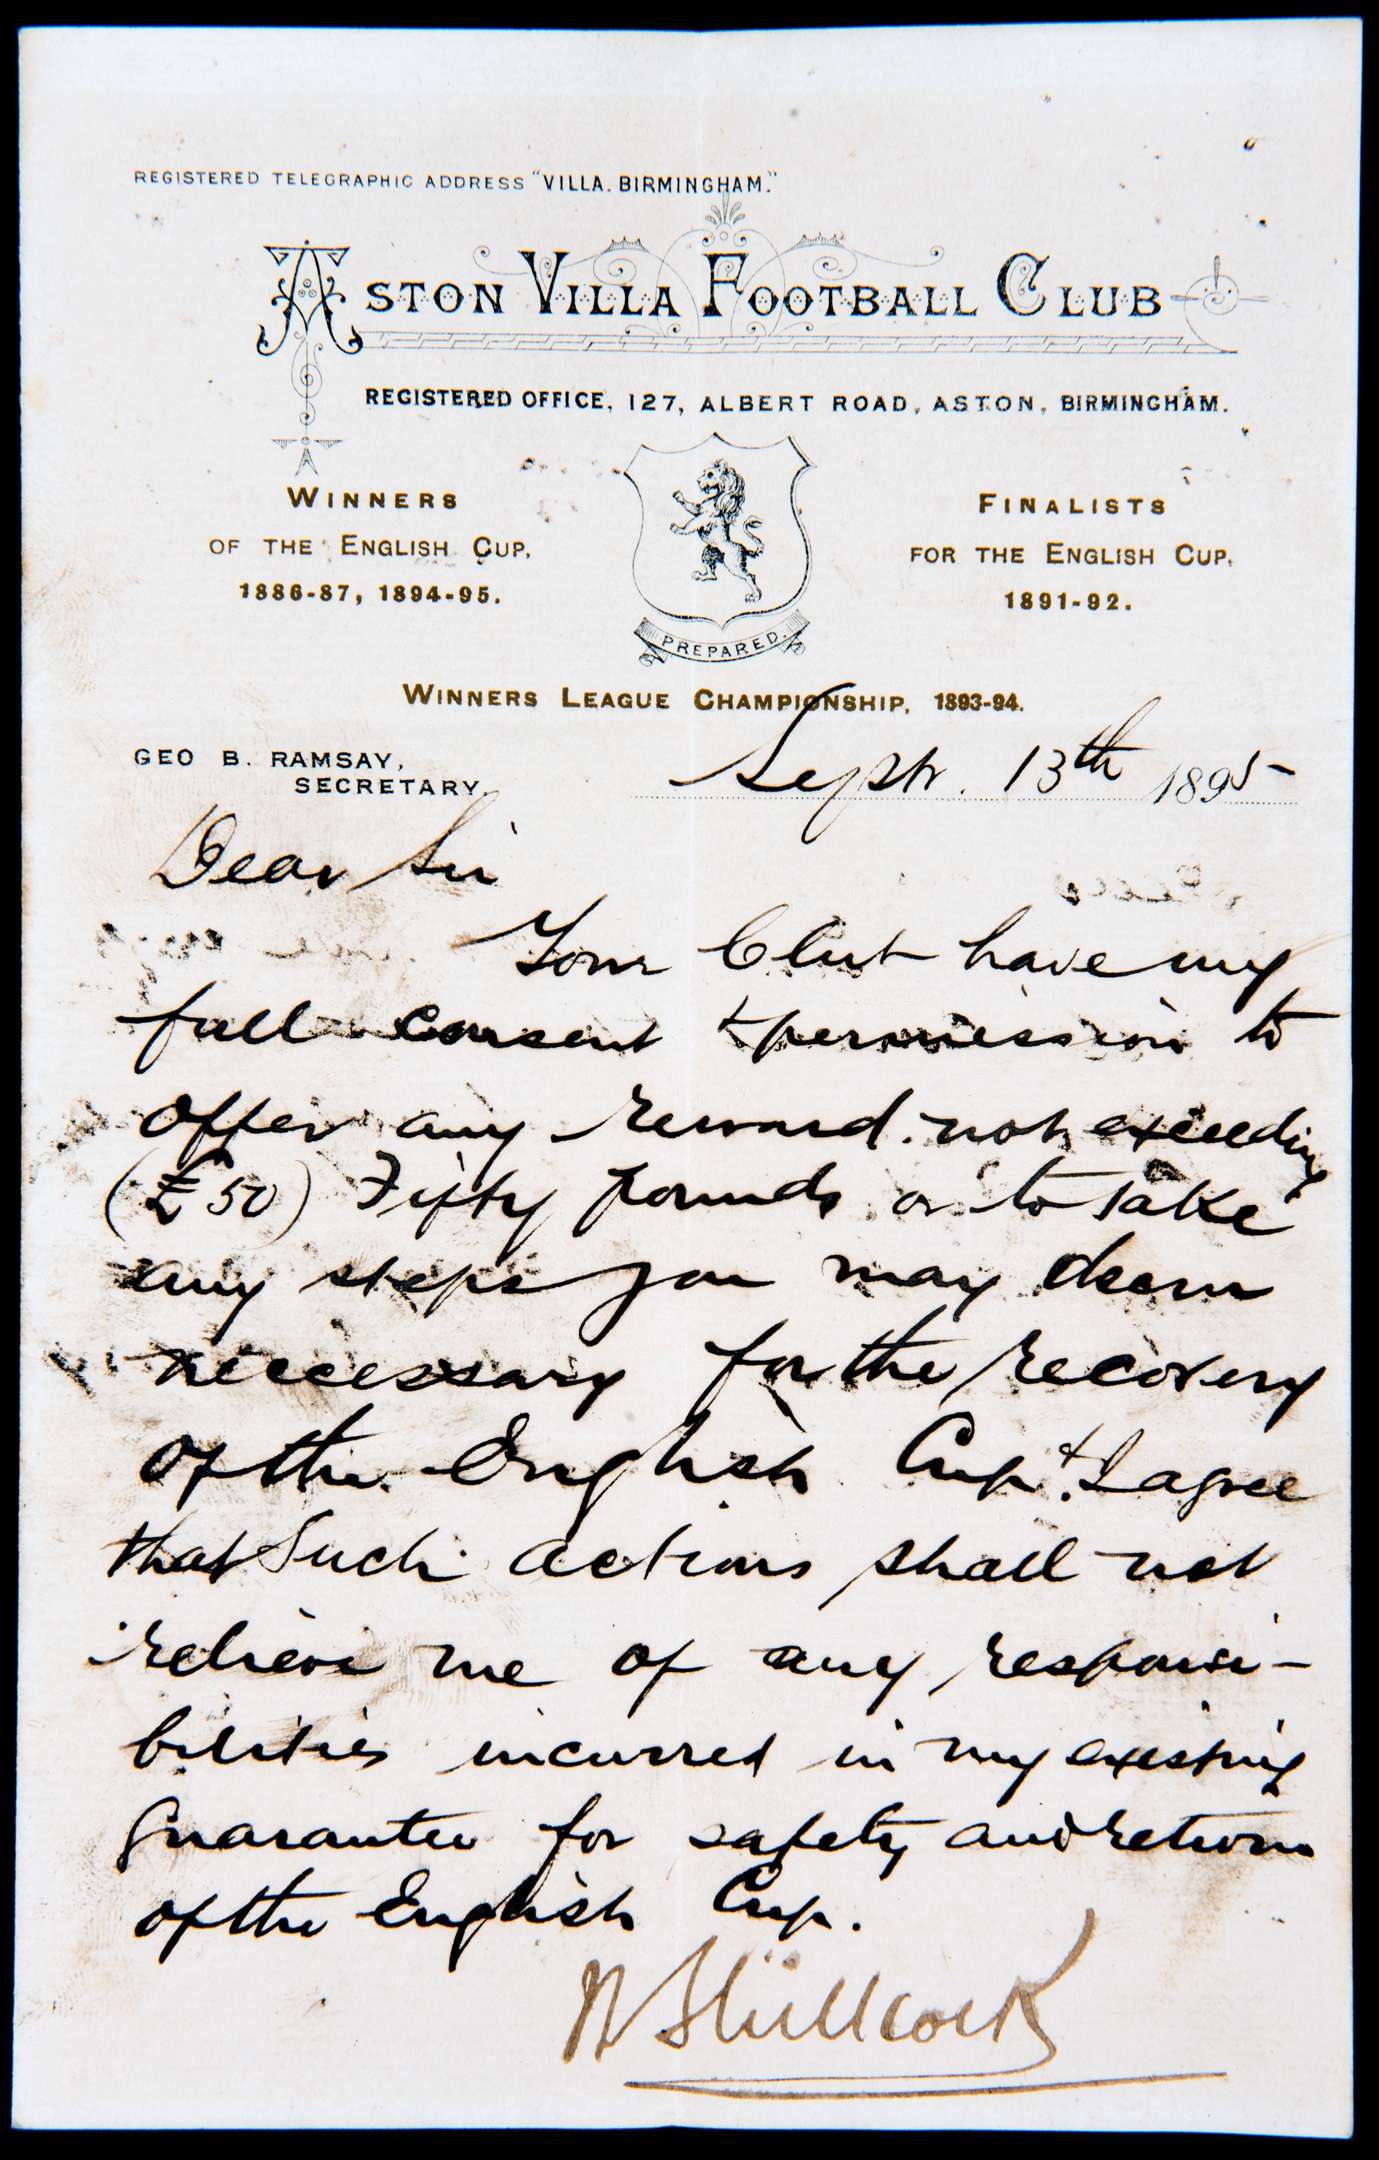 REGISTERED TELEGRAPHIC ADDRESS "VILLA. BIRMINGHAM."
ASTON VILLA FOOTBALL CLUB
REGISTERED OFFICE, 127, ALBERT ROAD, ASTON, BIRMINGHAM.
WINNERS
OF THE ENGLISH CUP,
1886-87, 1894-95.
FINALISTS
FOR THE ENGLISH CUP,
1891-92.
PREPARED.
WINNERS LEAGUE CHAMPIONSHIP, 1893-94.
GEO B. RAMSAY,
SECRETARY.
Septr. 13th 1895
Dear Sir
Your Club have my
full consent & permission to
offer any reward not exceeding
(£50) Fifty pounds or to take
any steps you may deem
neccessary for the recovery
of the English Cup. & I agree
that such actions shall not
relieve me of any responsi-
bilities incurred in my existing
guarantee for safety and return
of the English Cup.
W Shillcock